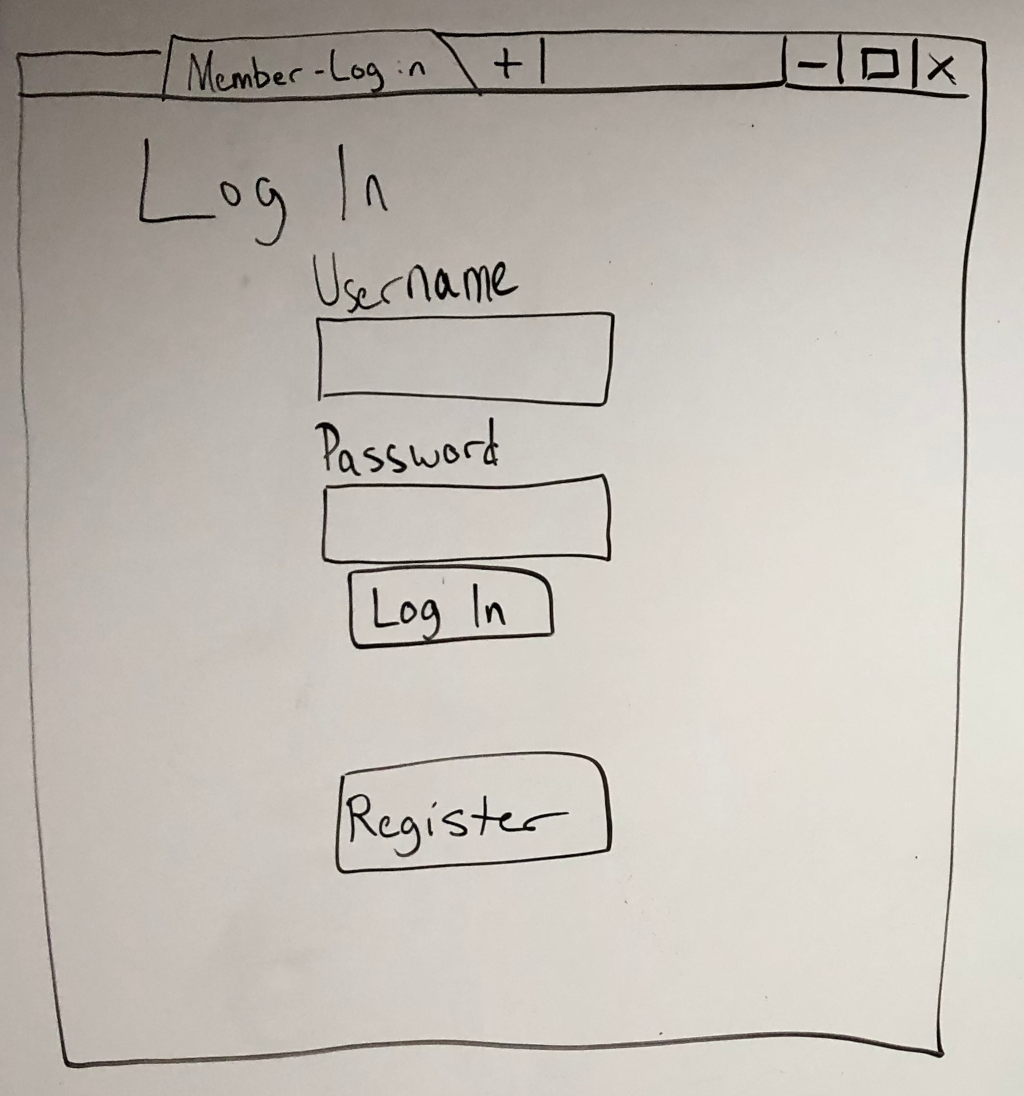 Member-Log in +
Log In
Username
Password
Log In
Register